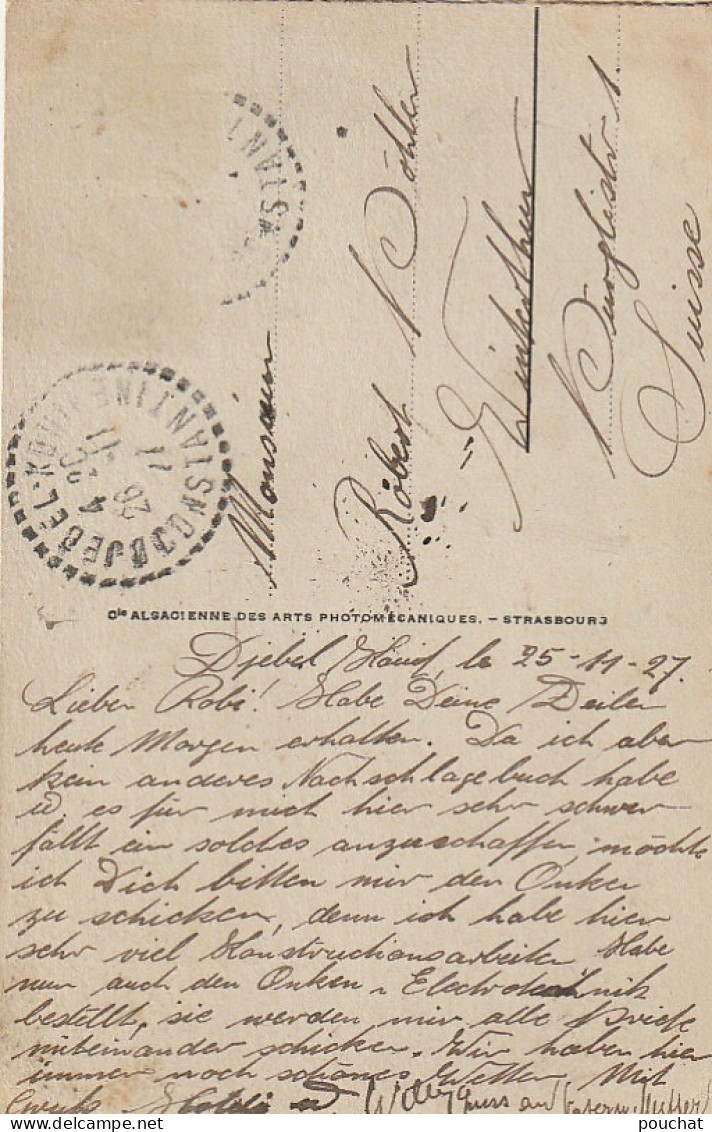 Monsieur
Robert Köhler
Winterthur
Suisse
CONSTANTINE
DJEBEL-KOUIF
26 11
Cie ALSACIENNE DES ARTS PHOTOMÉCANIQUES. – STRASBOURG
Djebel Kouif, le 25-11-27.
Lieber Robi! Habe Deine Zeilen
heute Morgen erhalten. Da ich aber
kein anderes Nachschlagebuch habe
u. es für mich hier sehr schwer
fällt ein solches anzuschaffen, möchte
ich Dich bitten mir den Onken
zu schicken, denn ich habe hier
sehr viel Konstructionsarbeiten Habe
nun auch den Onken Electrotechnik
bestellt, sie werden mir alle Briefe
miteinander schicken. Wir haben hier
immer noch schönes Wetter. Mit
Gruss an
pouchat